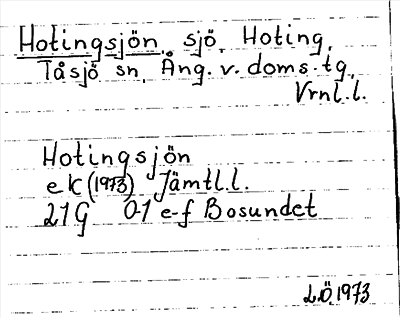 Hotingsjön, sjö, Hoting,
Tåsjö sn, Ång. v. doms. tg,
Vrnl.l.
Hotingsjön
ek (1973) Jämtl.l.
21G 0-1 e-f Bosundet
L.Ö. 1973